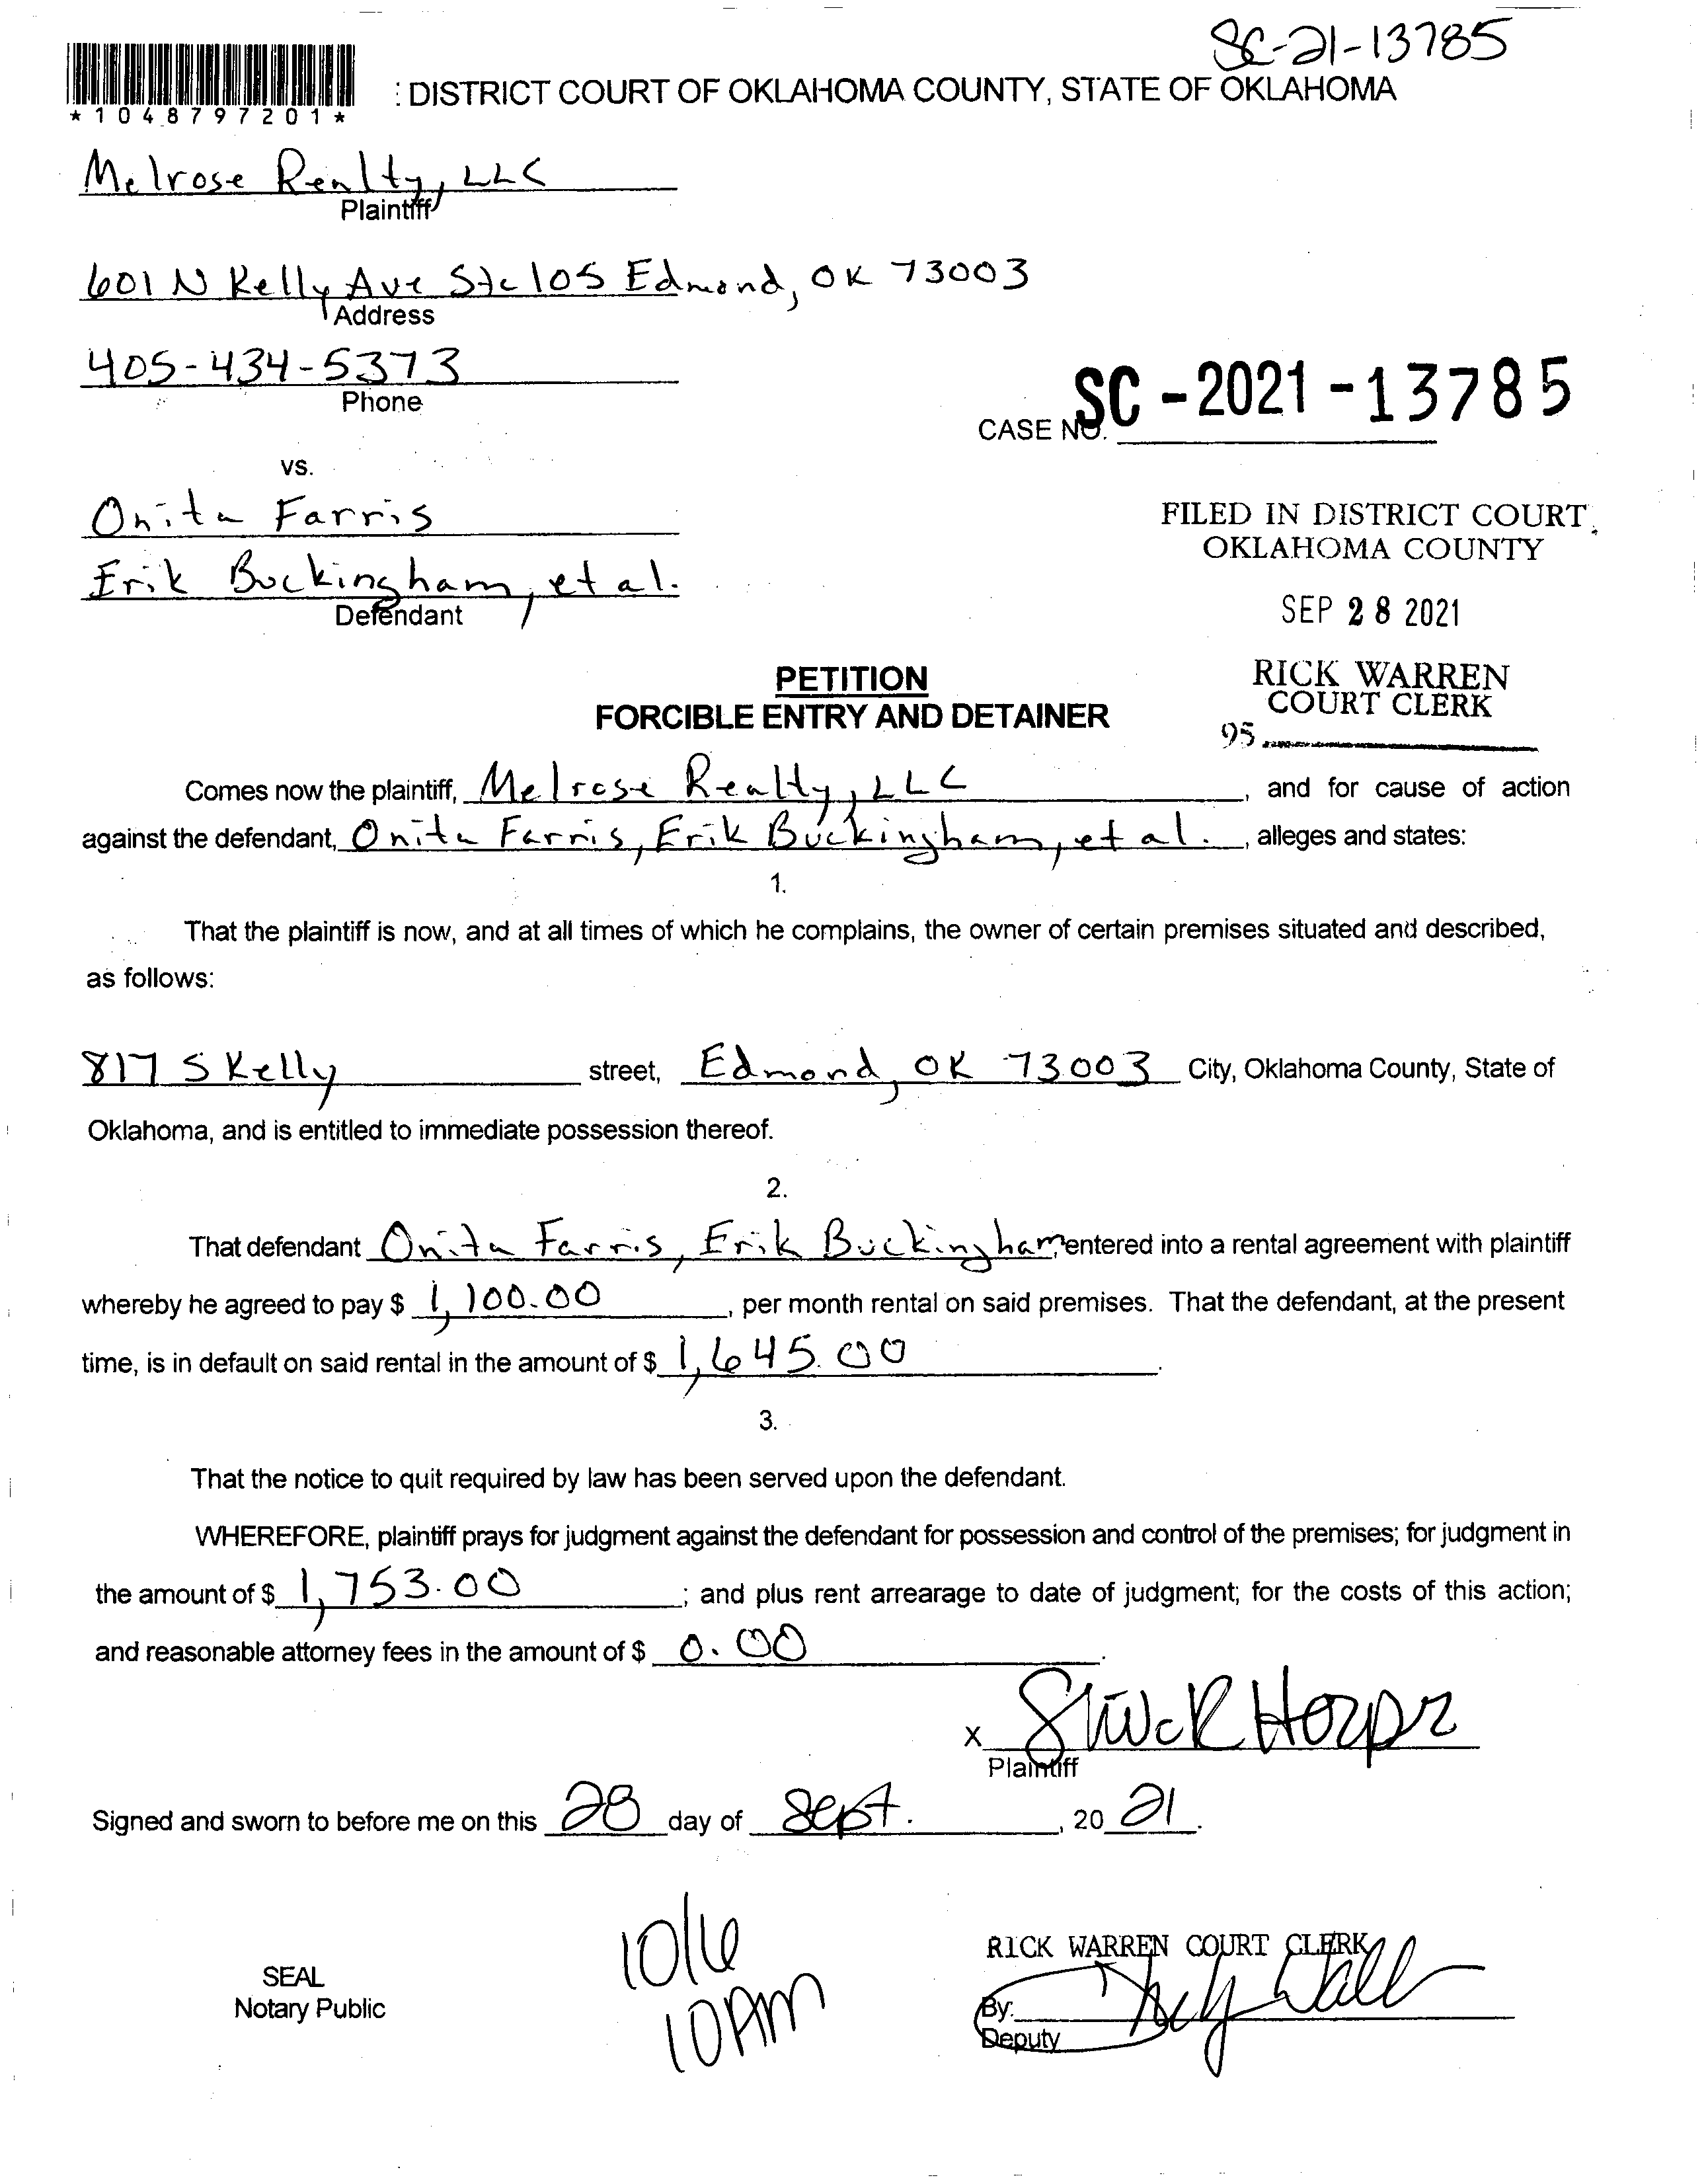 SC-21-13785
: DISTRICT COURT OF OKLAHOMA COUNTY, STATE OF OKLAHOMA
*1048797201*
Melrose Realty, LLC
Plaintiff
601 N Kelly Ave Ste 105 Edmond, OK 73003
Address
405-434-5373
Phone
CASE NO. SC-2021-13785
vs.
Onita Farris
Erik Buckingham, et al.
Defendant
FILED IN DISTRICT COURT
OKLAHOMA COUNTY
SEP 28 2021
RICK WARREN
COURT CLERK
95
PETITION
FORCIBLE ENTRY AND DETAINER
Comes now the plaintiff, Melrose Realty, LLC, and for cause of action
against the defendant, Onita Farris, Erik Buckingham, et al., alleges and states:
1.
That the plaintiff is now, and at all times of which he complains, the owner of certain premises situated and described,
as follows:
817 S Kelly street, Edmond, OK 73003 City, Oklahoma County, State of
Oklahoma, and is entitled to immediate possession thereof.
2.
That defendant Onita Farris, Erik Buckingham, entered into a rental agreement with plaintiff
whereby he agreed to pay $ 1,100.00, per month rental on said premises. That the defendant, at the present
time, is in default on said rental in the amount of $ 1,645.00.
3.
That the notice to quit required by law has been served upon the defendant.
WHEREFORE, plaintiff prays for judgment against the defendant for possession and control of the premises; for judgment in
the amount of $ 1,753.00; and plus rent arrearage to date of judgment; for the costs of this action;
and reasonable attorney fees in the amount of $ 0.00.
X
Plaintiff
Signed and sworn to before me on this 28 day of Sept., 20 21.
10/6
10AM
SEAL
Notary Public
RICK WARREN COURT CLERK
By:
Deputy